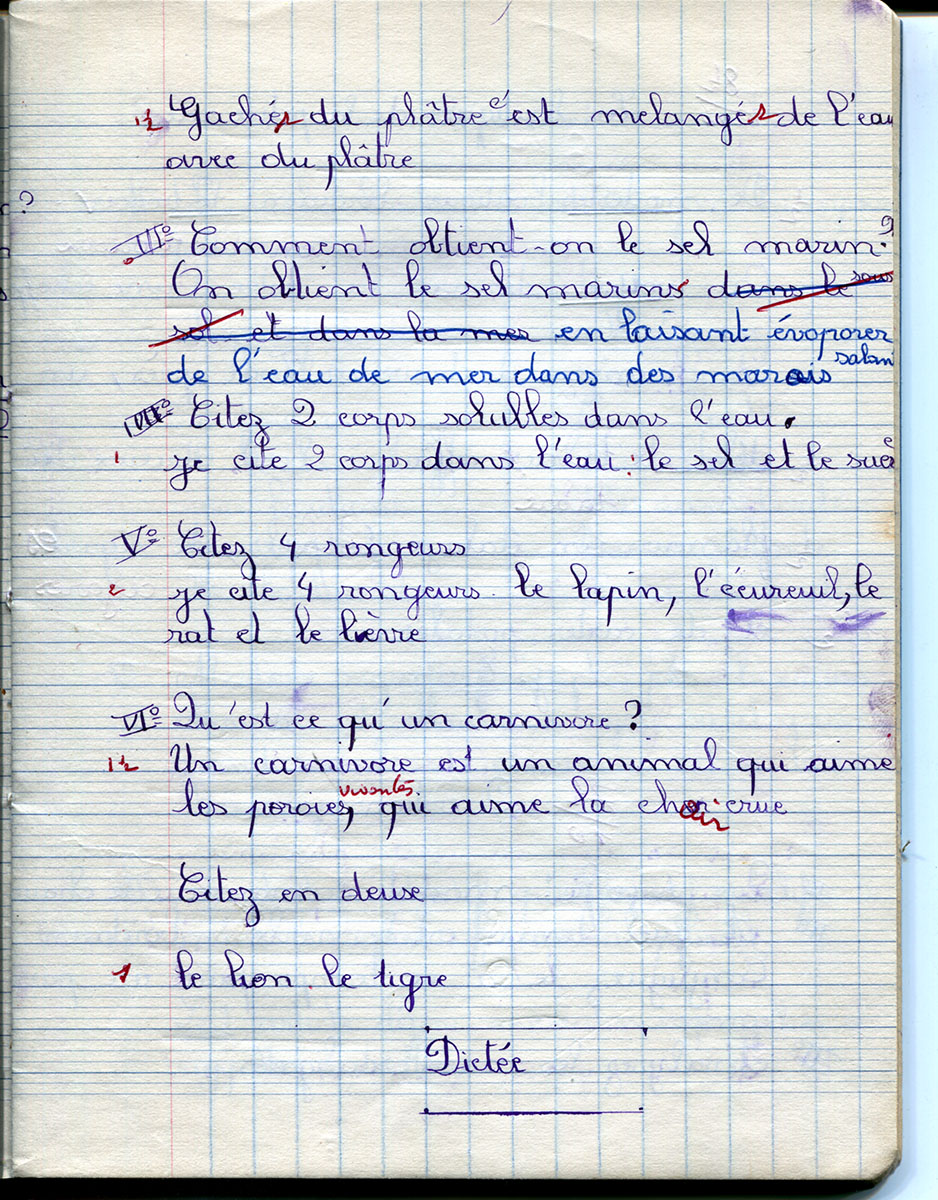 1½ Gacher du plâtre c'est melanger de l'eau
avec du plâtre
?
III° Comment obtient-on le sel marin?
On obtient le sel marins dans le sous
sol et dans la mer en faisant évoporer
de l'eau de mer dans des marais salan
Citez 2 corps solubles dans l'eau.
1 je cite 2 corps dans l'eau : le sel et le suc
V° Citez 4 rongeurs
2 je cite 4 rongeurs. le lapin, l'écureuil, le
rat et le lièvre
VI° Qu'est ce qu'un carnivore ?
1½ Un carnivore est un animal qui aime
les poroies vivantes, qui aime la chair crue
Citez en deuse
1 le lion. le tigre
Dictée